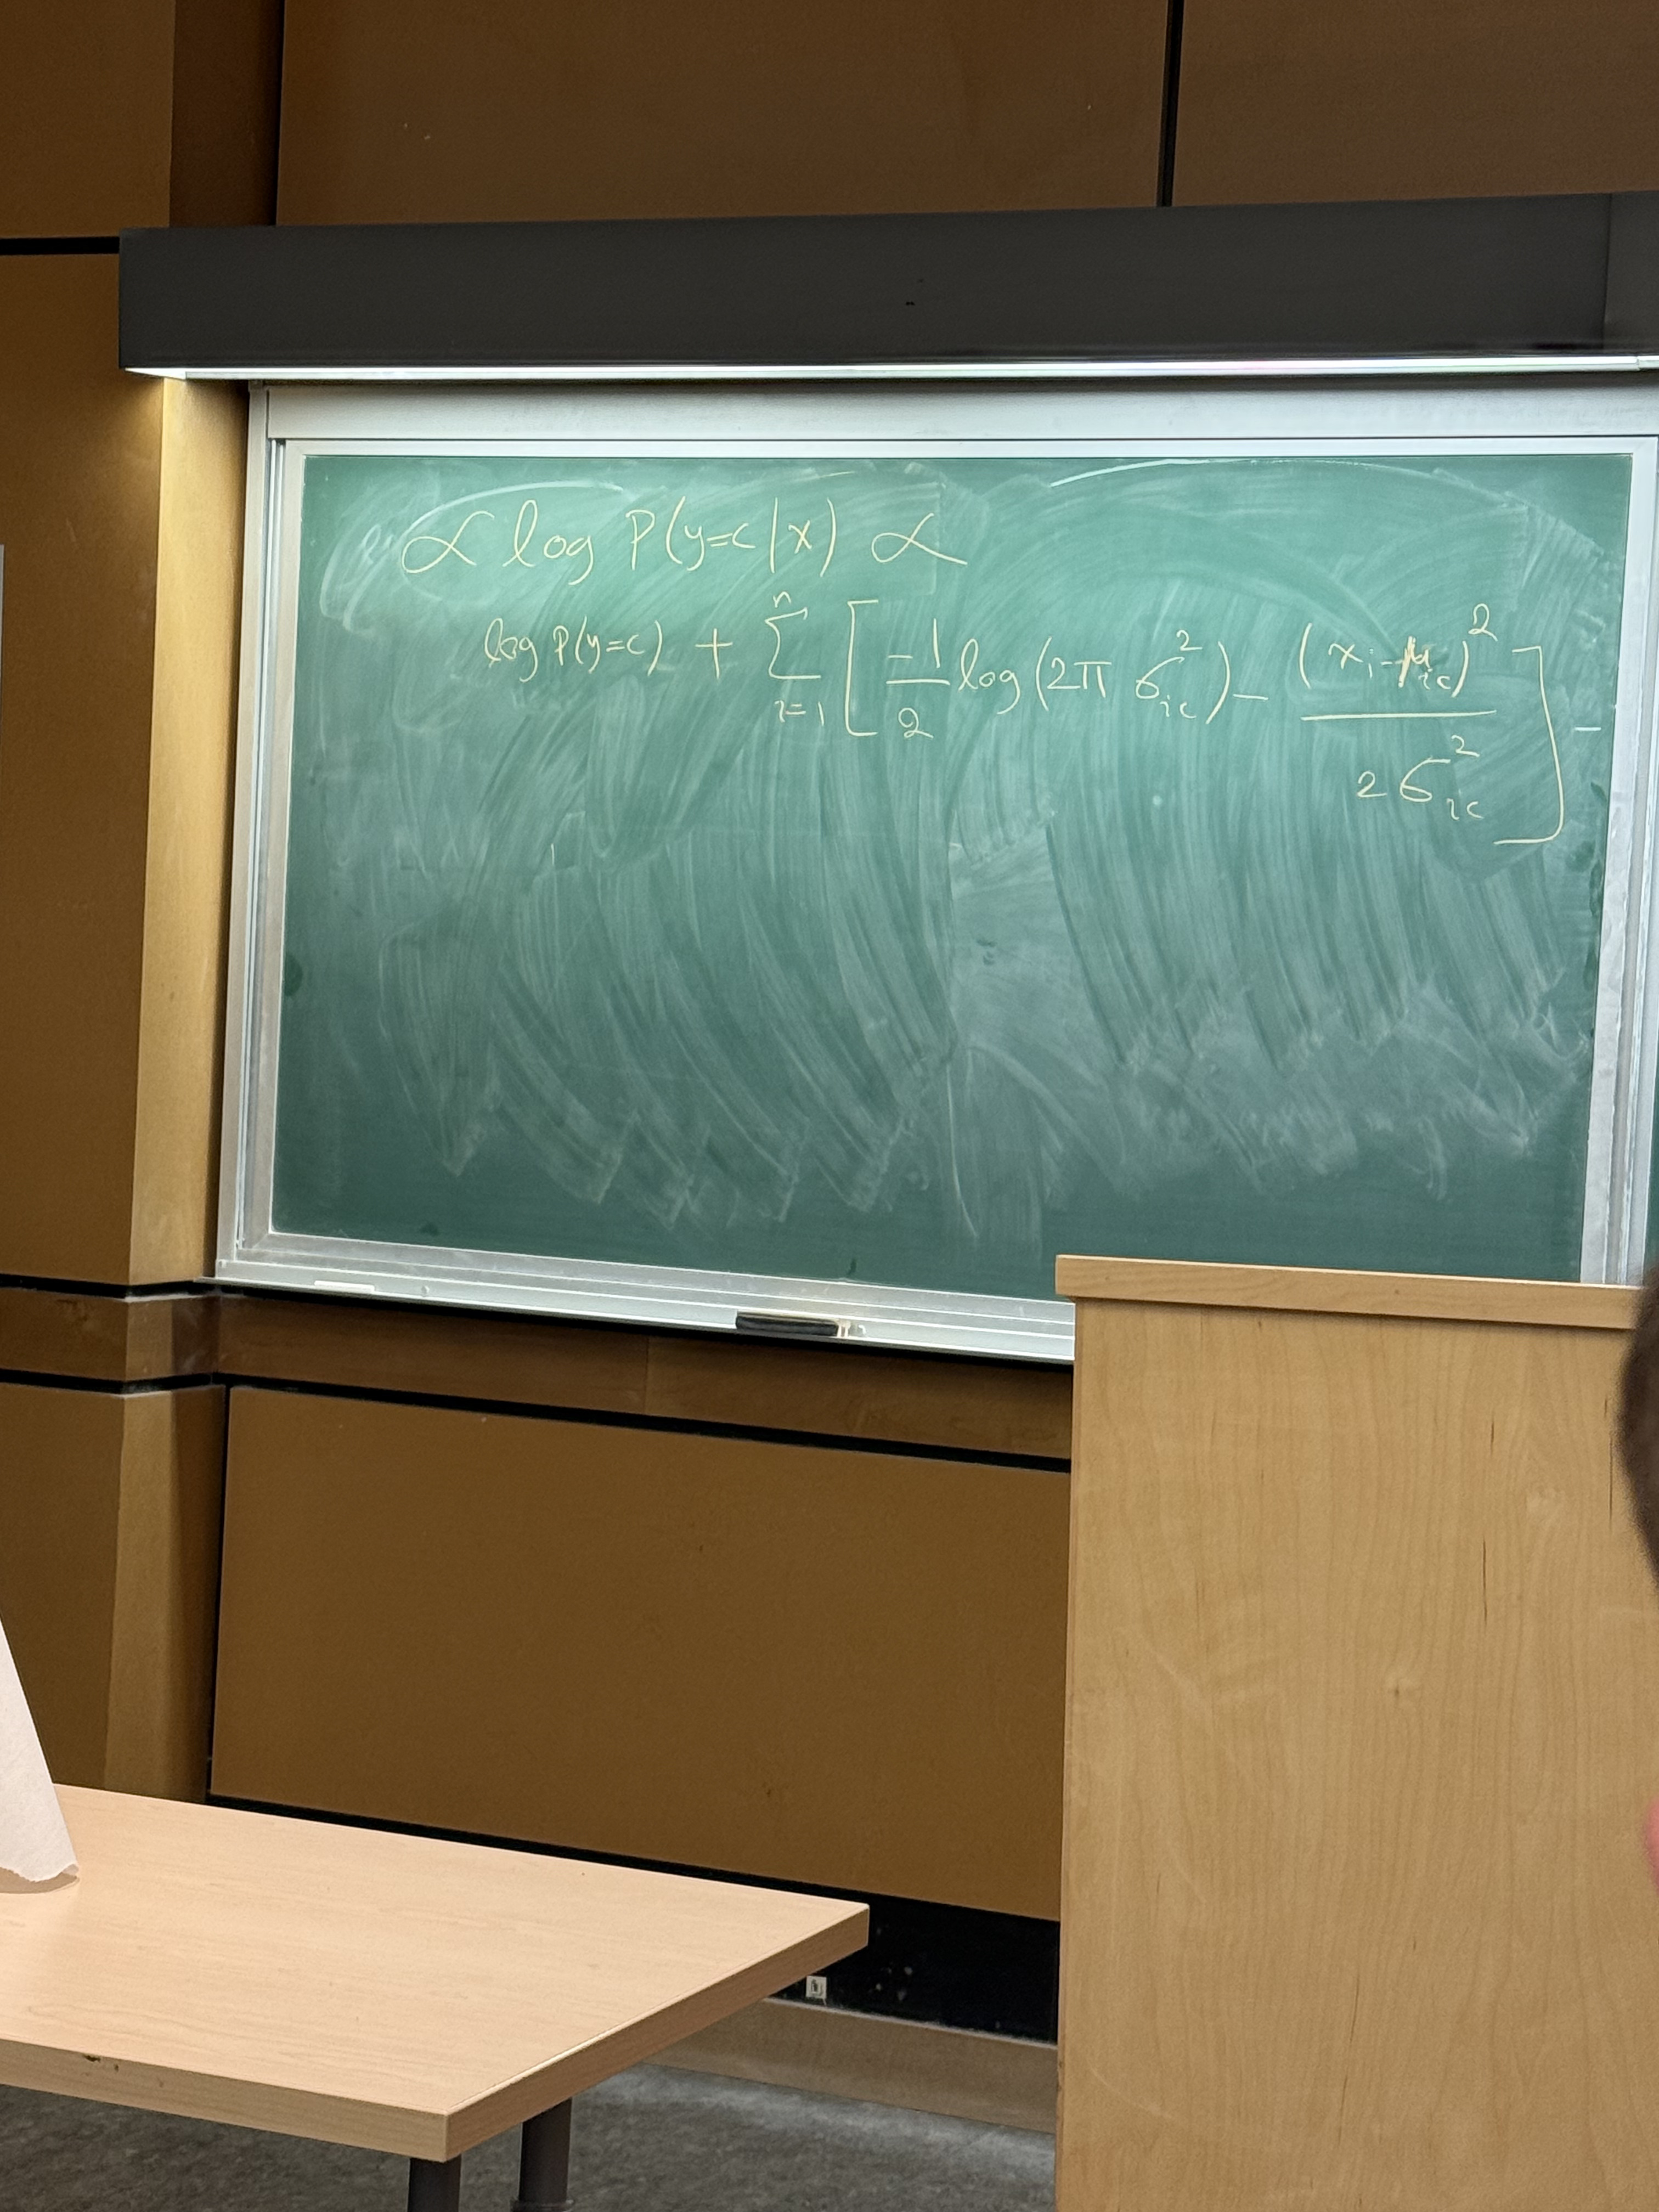 ∝ log P(y=c|x) ∝
log P(y=c) + Σ_{i=1}^{n} [ -1/2 log(2π σ_{ic}^2) - (x_i - μ_{ic})^2 / 2σ_{ic}^2 ] -